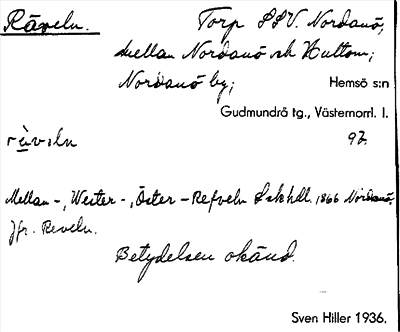 Räveln. Torp SSV. Nordanö,
mellan Nordanö och Hultom;
Nordanö by; Hemsö s:n
Gudmundrå tg., Västernorrl. l.
räveln 92.
Mellan-, Wester-, Öster-Refveln Lskhdl. 1866 Nordanö.
Jfr. Reveln.
Betydelsen okänd.
Sven Hiller 1936.